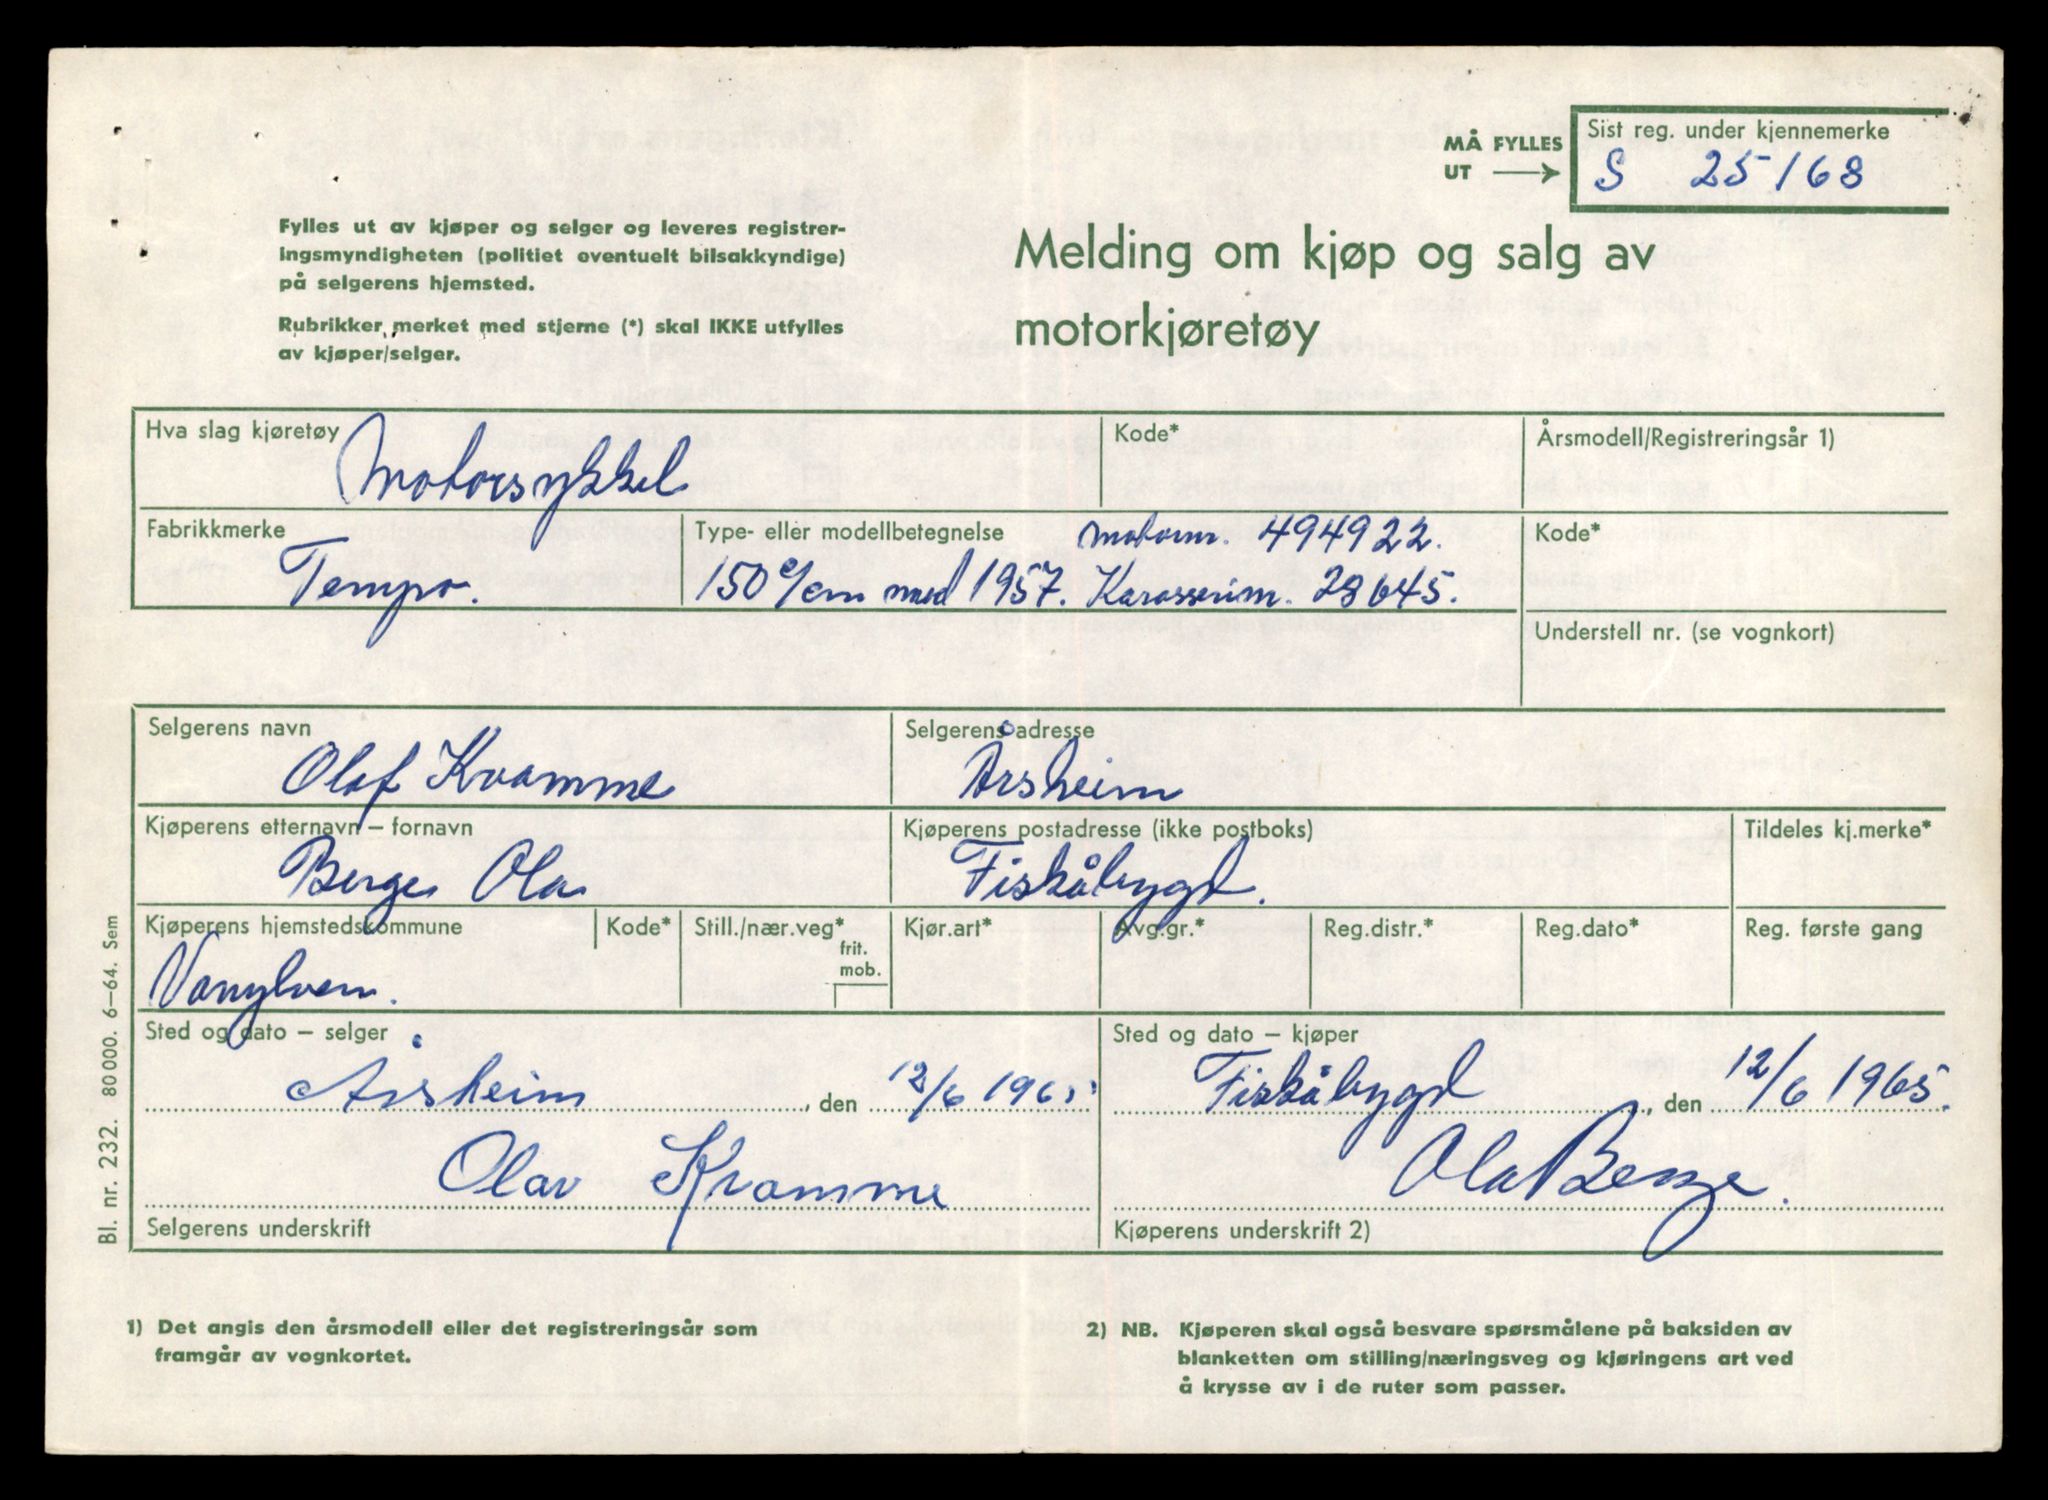 MÅ FYLLES
UT →
Sist reg. under kjennemerke
S 25168
Fylles ut av kjøper og selger og leveres registrer-
ingsmyndigheten (politiet eventuelt bilsakkyndige)
på selgerens hjemsted.
Rubrikker merket med stjerne (*) skal IKKE utfylles
av kjøper/selger.
Melding om kjøp og salg av
motorkjøretøy
Hva slag kjøretøy
Motorsykkel
Kode*
Årsmodell/Registreringsår 1)
Fabrikkmerke
Tempo.
Type- eller modellbetegnelse
Motornr. 494922.
150 c/cm mod 1957. Karosserinr. 28645.
Kode*
Understell nr. (se vognkort)
Selgerens navn
Olaf Kvamme
Selgerens adresse
Årsheim
Kjøperens etternavn – fornavn
Berge Ola
Kjøperens postadresse (ikke postboks)
Fiskåbygd.
Tildeles kj.merke*
Kjøperens hjemstedskommune
Vanylven.
Kode*
Still./nær.veg*
frit.
mob.
Kjør.art*
Avg.gr.*
Reg.distr.*
Reg.dato*
Reg. første gang
Sted og dato – selger
Årsheim, den 12/6 1965
Olav Kvamme
Selgerens underskrift
Sted og dato – kjøper
Fiskåbygd, den 12/6 1965.
Ola Berge.
Kjøperens underskrift 2)
Bl. nr. 232. 80 000. 6–64. Sem
1) Det angis den årsmodell eller det registreringsår som
framgår av vognkortet.
2) NB. Kjøperen skal også besvare spørsmålene på baksiden av
blanketten om stilling/næringsveg og kjøringens art ved
å krysse av i de ruter som passer.